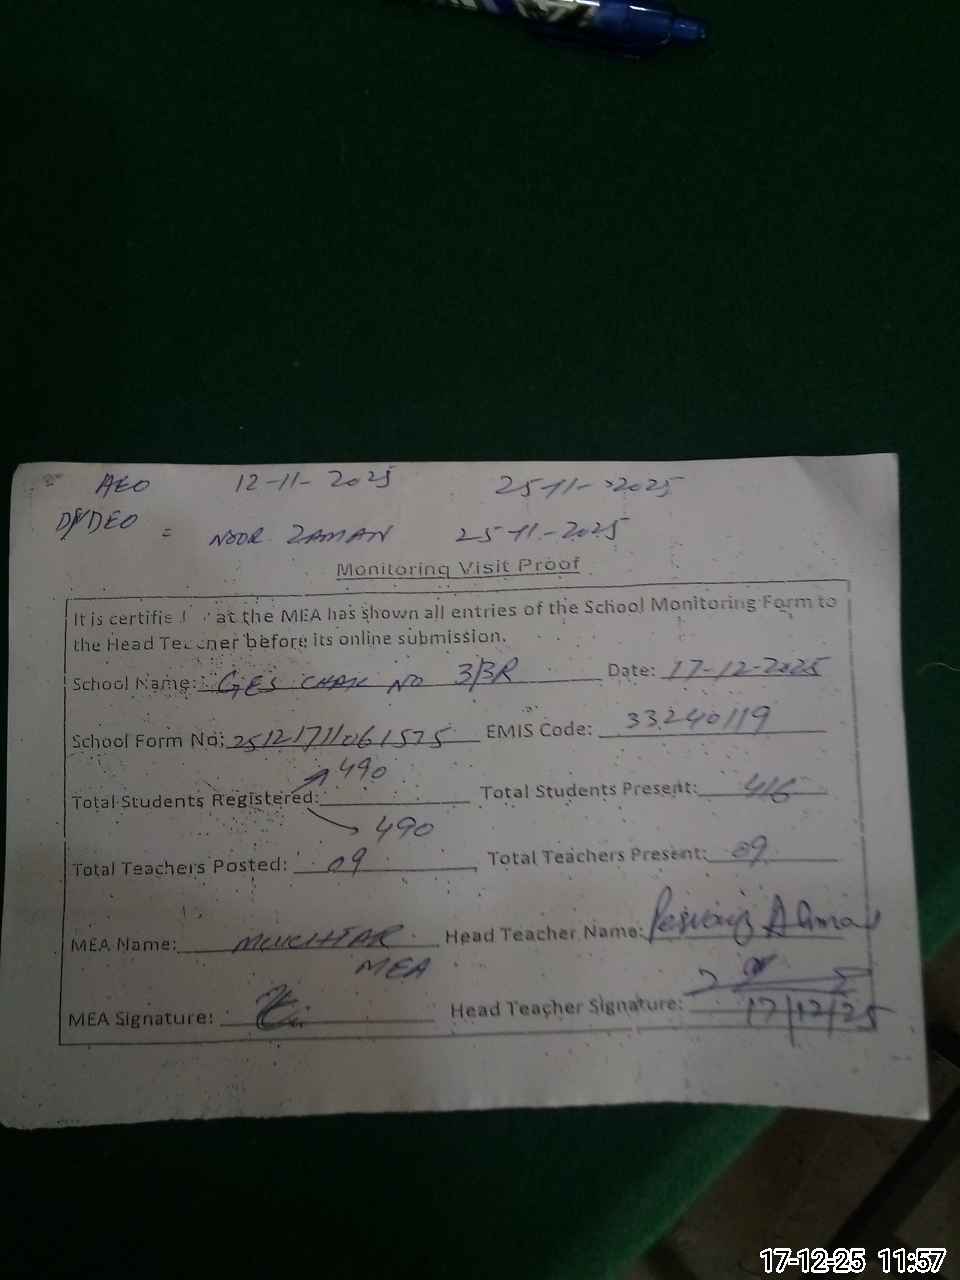 AEO 12-11-2025 25-11-2025
Dy DEO = NOOR ZAMAN 25-11-2025
Monitoring Visit Proof
It is certifie at the MEA has shown all entries of the School Monitoring Form to
the Head Teacher before its online submission.
School Name: GES CHAK NO 3/3R Date: 17-12-2025
School Form No: 25121711061575 EMIS Code: 33240119
490
Total Students Registered: Total Students Present: 416
490
Total Teachers Posted: 09 Total Teachers Present: 09
MEA Name: MUKHTAR Head Teacher Name: Pervaiz Ahmad
MEA
MEA Signature: Head Teacher Signature:
17/12/25
17-12-25 11:57